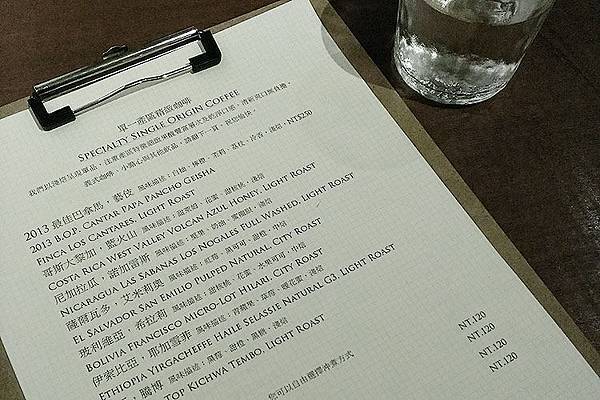 單一產區精緻咖啡
SPECIALTY SINGLE ORIGIN COFFEE
義式咖啡、小點心與其他飲品,請翻下一頁。祝您愉快。
2013 最佳巴拿馬,藝伎 風味描述:白柚、檸檬、茉莉、荔枝、冷香,淺焙。NT$250
2013 B.O.P. CANTAR PAPA PANCHO GEISHA
FINCA LOS CANTARES, LIGHT ROAST
哥斯大黎加,藍火山 風味描述:花蜜、甜桃核,淺焙
COSTA RICA WEST VALLEY VOLCAN AZUL HONEY, LIGHT ROAST
尼加拉瓜,諾加雷斯 風味描述:堅果、奶油、蜜脆甜,淺焙
NICARAGUA LAS SABANAS LOS NOGALES FULL WASHED, LIGHT ROAST
薩爾瓦多,艾米利奧 風味描述:黑可可、甜橙,中焙
EL SALVADOR SAN EMILIO PULPED NATURAL, CITY ROAST
玻利維亞,希拉莉 風味描述:甜桃核、花蜜、水果可可,中焙
BOLIVIA FRANCISCO MICRO-LOT HILARI, CITY ROAST
伊索比亞,耶加雪菲 風味描述:青蘋果、草莓、暖花蜜,淺焙
ETHIOPIA YIRGACHEFFE HAILE SELASSIE NATURAL G3, LIGHT ROAST
,騰博 風味描述:黑莓、甜橙、黑糖,淺焙
TOP KICHWA TEMBO, LIGHT ROAST
NT.120
NT.120
NT.120
您可以自由選擇沖煮方式